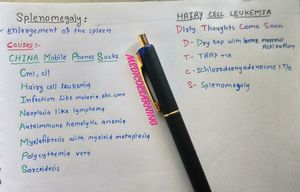 Splenomegaly:
enlargement of the spleen
Causes:-
CHINA Mobile Phones Sucks
Cml, cll
Hairy cell leukemia
Infection like malaria, ebv, cmv
Neoplasia like lymphoma
Autoimmune hemolytic anemia
Myelofibrosis with myeloid metaplasia
Polycythemia vera
Sarcoidosis
MEDICOZLEARNING
HAIRY CELL LEUKEMIA
Dirty Thoughts Come Soon
D- Dry tap with bone marrow
aspiration
T- TRAP +ve
C- 2chlorodeoxyadenosine :T/t
S- Splenomegaly